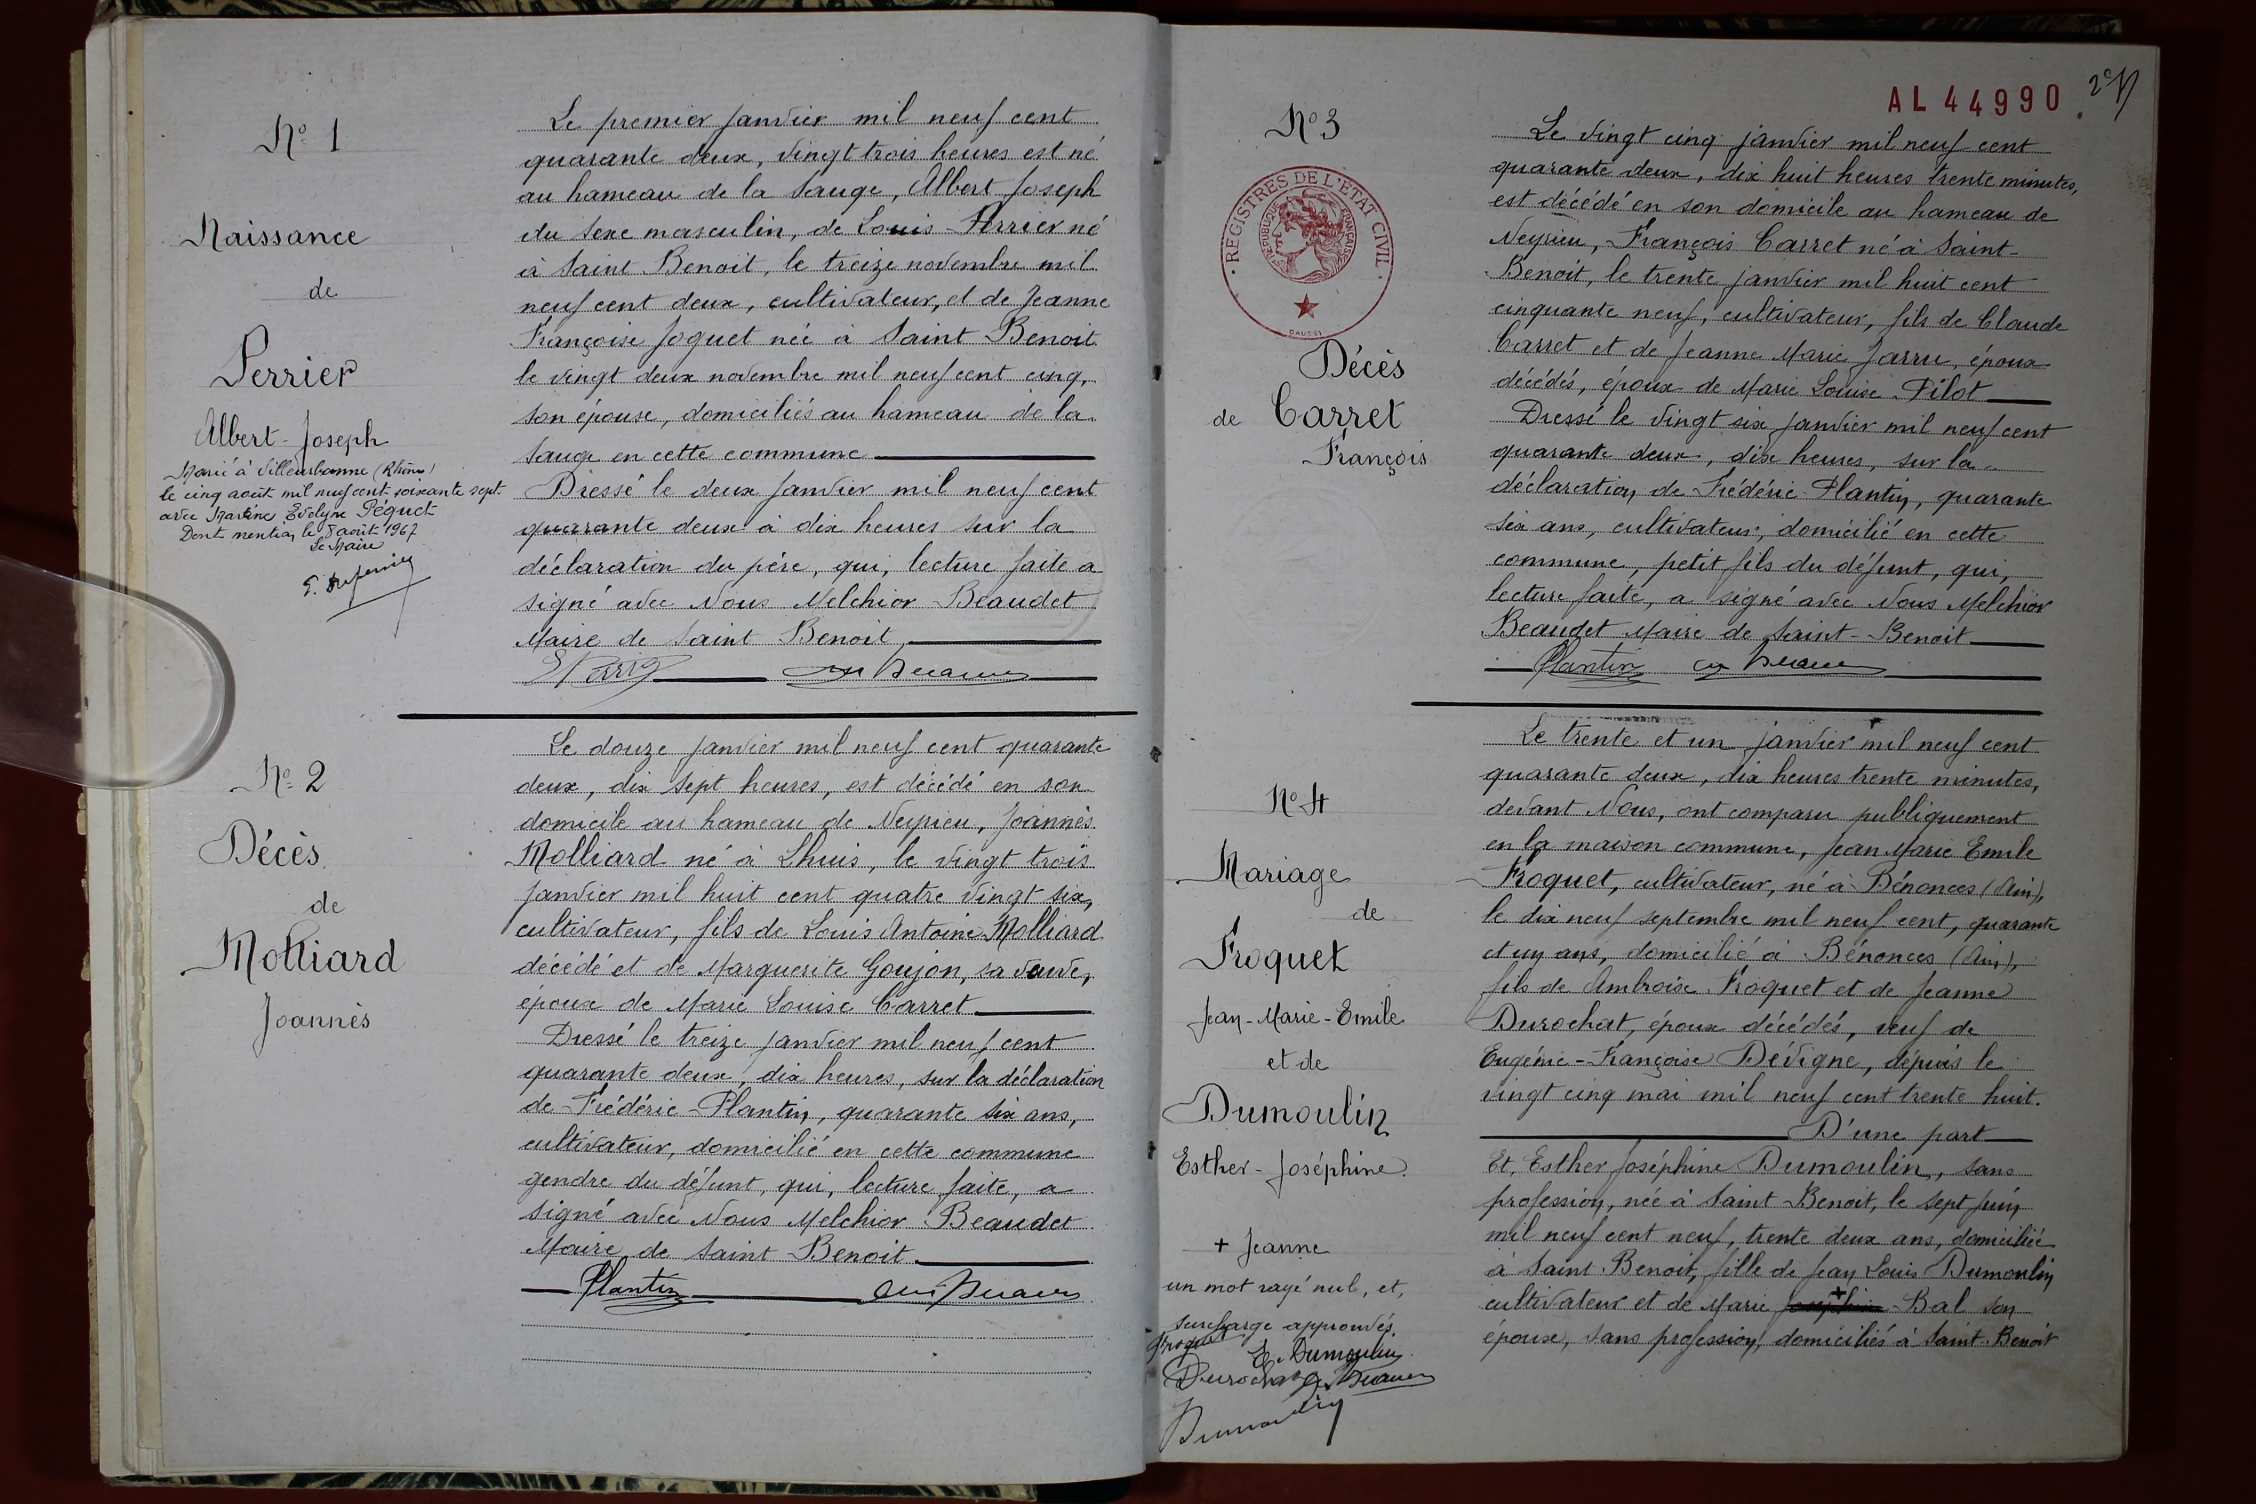 N° 1
Naissance
de
Perrier
Albert-Joseph
Marié à Villeurbanne (Rhône)
le cinq août mil neuf cent soixante sept
avec Martine Evelyne Péquet
Dont mention le 8 août 1967
Le Maire
Le premier janvier mil neuf cent
quarante deux, vingt trois heures est né
au hameau de la Sauge, Albert Joseph
du sexe masculin, de Louis Perrier né
à Saint Benoit, le treize novembre mil
neuf cent deux, cultivateur, et de Jeanne
Françoise Joguet née à Saint Benoit
le vingt deux novembre mil neuf cent cinq,
son épouse, domiciliés au hameau de la
Sauge en cette commune
Dressé le deux janvier mil neuf cent
quarante deux à dix heures sur la
déclaration du père, qui, lecture faite a
signé avec Nous Melchior Beaudet
Maire de Saint Benoit
N° 2
Décès
de
Molliard
Joannès
Le douze janvier mil neuf cent quarante
deux, dix sept heures, est décédé en son
domicile au hameau de Neyrieu, Joannès
Molliard né à Lhuis, le vingt trois
janvier mil huit cent quatre vingt six,
cultivateur, fils de Louis Antoine Molliard
décédé et de Marguerite Goujon, sa veuve,
époux de Marie Louise Carret
Dressé le treize janvier mil neuf cent
quarante deux, dix heures, sur la déclaration
de Frédéric Plantin, quarante six ans,
cultivateur, domicilié en cette commune
gendre du défunt, qui, lecture faite, a
signé avec Nous Melchior Beaudet
Maire de Saint Benoit
Plantin
AL 44990
N° 3
REGISTRES DE L'ETAT CIVIL
REPUBLIQUE FRANÇAISE
Décès
de Carret
François
Le vingt cinq janvier mil neuf cent
quarante deux, dix huit heures trente minutes,
est décédé en son domicile au hameau de
Neyrieu, François Carret né à Saint-
Benoit, le trente janvier mil huit cent
cinquante neuf, cultivateur, fils de Claude
Carret et de Jeanne Marie Jarru, époux
décédés, époux de Marie Louise Pilot
Dressé le vingt six janvier mil neuf cent
quarante deux, dix heures, sur la
déclaration de Frédéric Plantin, quarante
six ans, cultivateur, domicilié en cette
commune, petit fils du défunt, qui,
lecture faite, a signé avec Nous Melchior
Beaudet Maire de Saint-Benoit
Plantin
N° 4
Mariage
de
Froquet
Jean-Marie-Emile
et de
Dumoulin
Esther-Joséphine
+ Jeanne
un mot rayé nul, et,
surcharge approuvés.
Froquet
E. Dumoulin
Durochat
Dumoulin
Le trente et un janvier mil neuf cent
quarante deux, dix heures trente minutes,
devant Nous, ont comparu publiquement
en la maison commune, Jean Marie Emile
Froquet, cultivateur, né à Bénonces (Ain),
le dix neuf septembre mil neuf cent, quarante
et un ans, domicilié à Bénonces (Ain),
fils de Ambroise Froquet et de Jeanne
Durochat, époux décédés, veuf de
Eugénie-Françoise Dévigne, depuis le
vingt cinq mai mil neuf cent trente huit.
D'une part
Et, Esther Joséphine Dumoulin, sans
profession, née à Saint Benoit, le sept juin
mil neuf cent neuf, trente deux ans, domiciliée
à Saint Benoit, fille de Jean Louis Dumoulin
cultivateur et de Marie + Bal son
épouse, sans profession, domiciliés à Saint Benoit